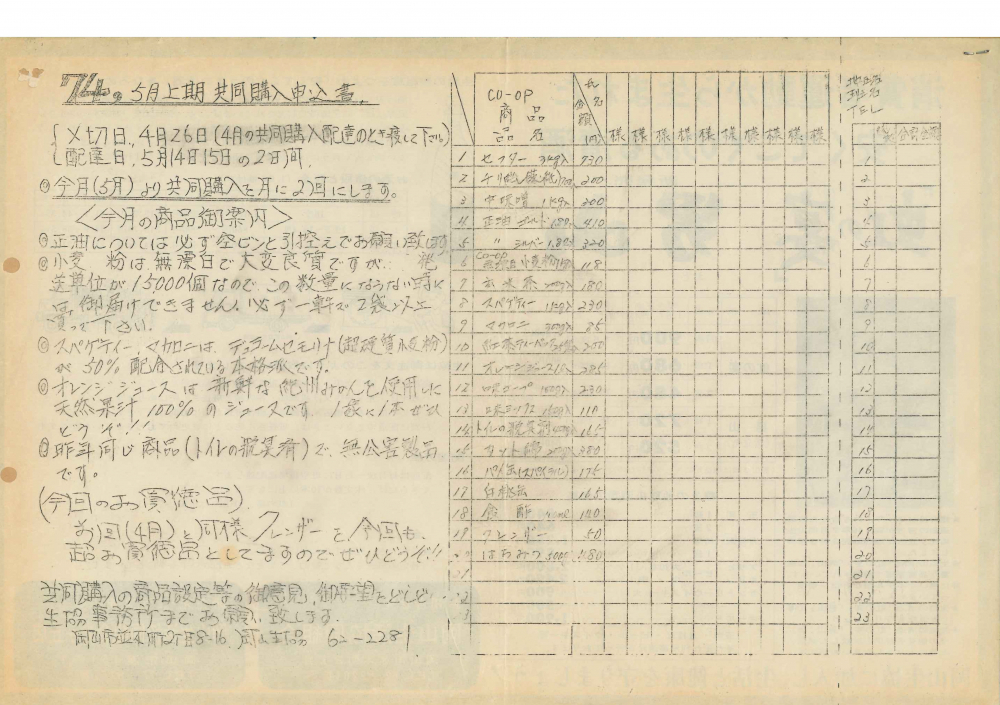 74年5月上期共同購入申込書
〆切日、4月26日(4月の共同購入配達のとき渡して下さい)
配達日、5月14日15日の2日間
◎今月(5月)より共同購入を月に2回にします。
<今月の商品御案内>
◎正油については必ず空ビンと引控えでお願い致します
◎小麦粉は無漂白で大変良質ですが、発
送単位が15000個なので、この数量にならない時に
御届けできません!必ず一軒で2袋以上
買って下さい.
◎スパゲティー、マカロニは、デュラームセモリナ(超硬質小麦粉)
が50%配合されている本格派です。
◎オレンジジュースは新鮮な紀州みかんを使用した
天然果汁100%のジュースです。1家に1本ぜひ
どうぞ!!
◎昨年同じ商品(トイレの脱臭剤)で、無公害製品
です。
(今回のお買徳品)
前回(4月)と同様クレンザーを今回も、
超お買徳品としてますのでぜひどうぞ!!
共同購入の商品設定等の御意見、御希望をどしどし
生協事務所までお願い致します。
岡山市並木町2丁目8-16、岡山生協 62-2281
CO-OP
商品
品名
氏名
金額
円
様 様 様 様 様 様 様 様 様 様
1 セフター 3kg入 730
2 200
3 中味噌 1kg入 200
4 正油 ゴールド 1.8ℓ入 410
5 〃 シルバー 1.8ℓ入 320
6 CO-OP 小麦粉 118
7 玄米茶 200g入 180
8 スパゲティー 1kg入 230
9 マカロニ 300g入 85
10 紅茶ティーバッグ 200
11 オレンジジュース 285
12 230
13 110
14 トイレの脱臭剤 165
15 カット綿 380
16 パイン缶 175
17 白桃缶 165
18 食酢 140
19 クレンザー 50
20 はちみつ 500g 480
21
22
23
TEL
合計金額
1
2
3
4
5
6
7
8
9
10
11
12
13
14
15
16
17
18
19
20
21
22
23